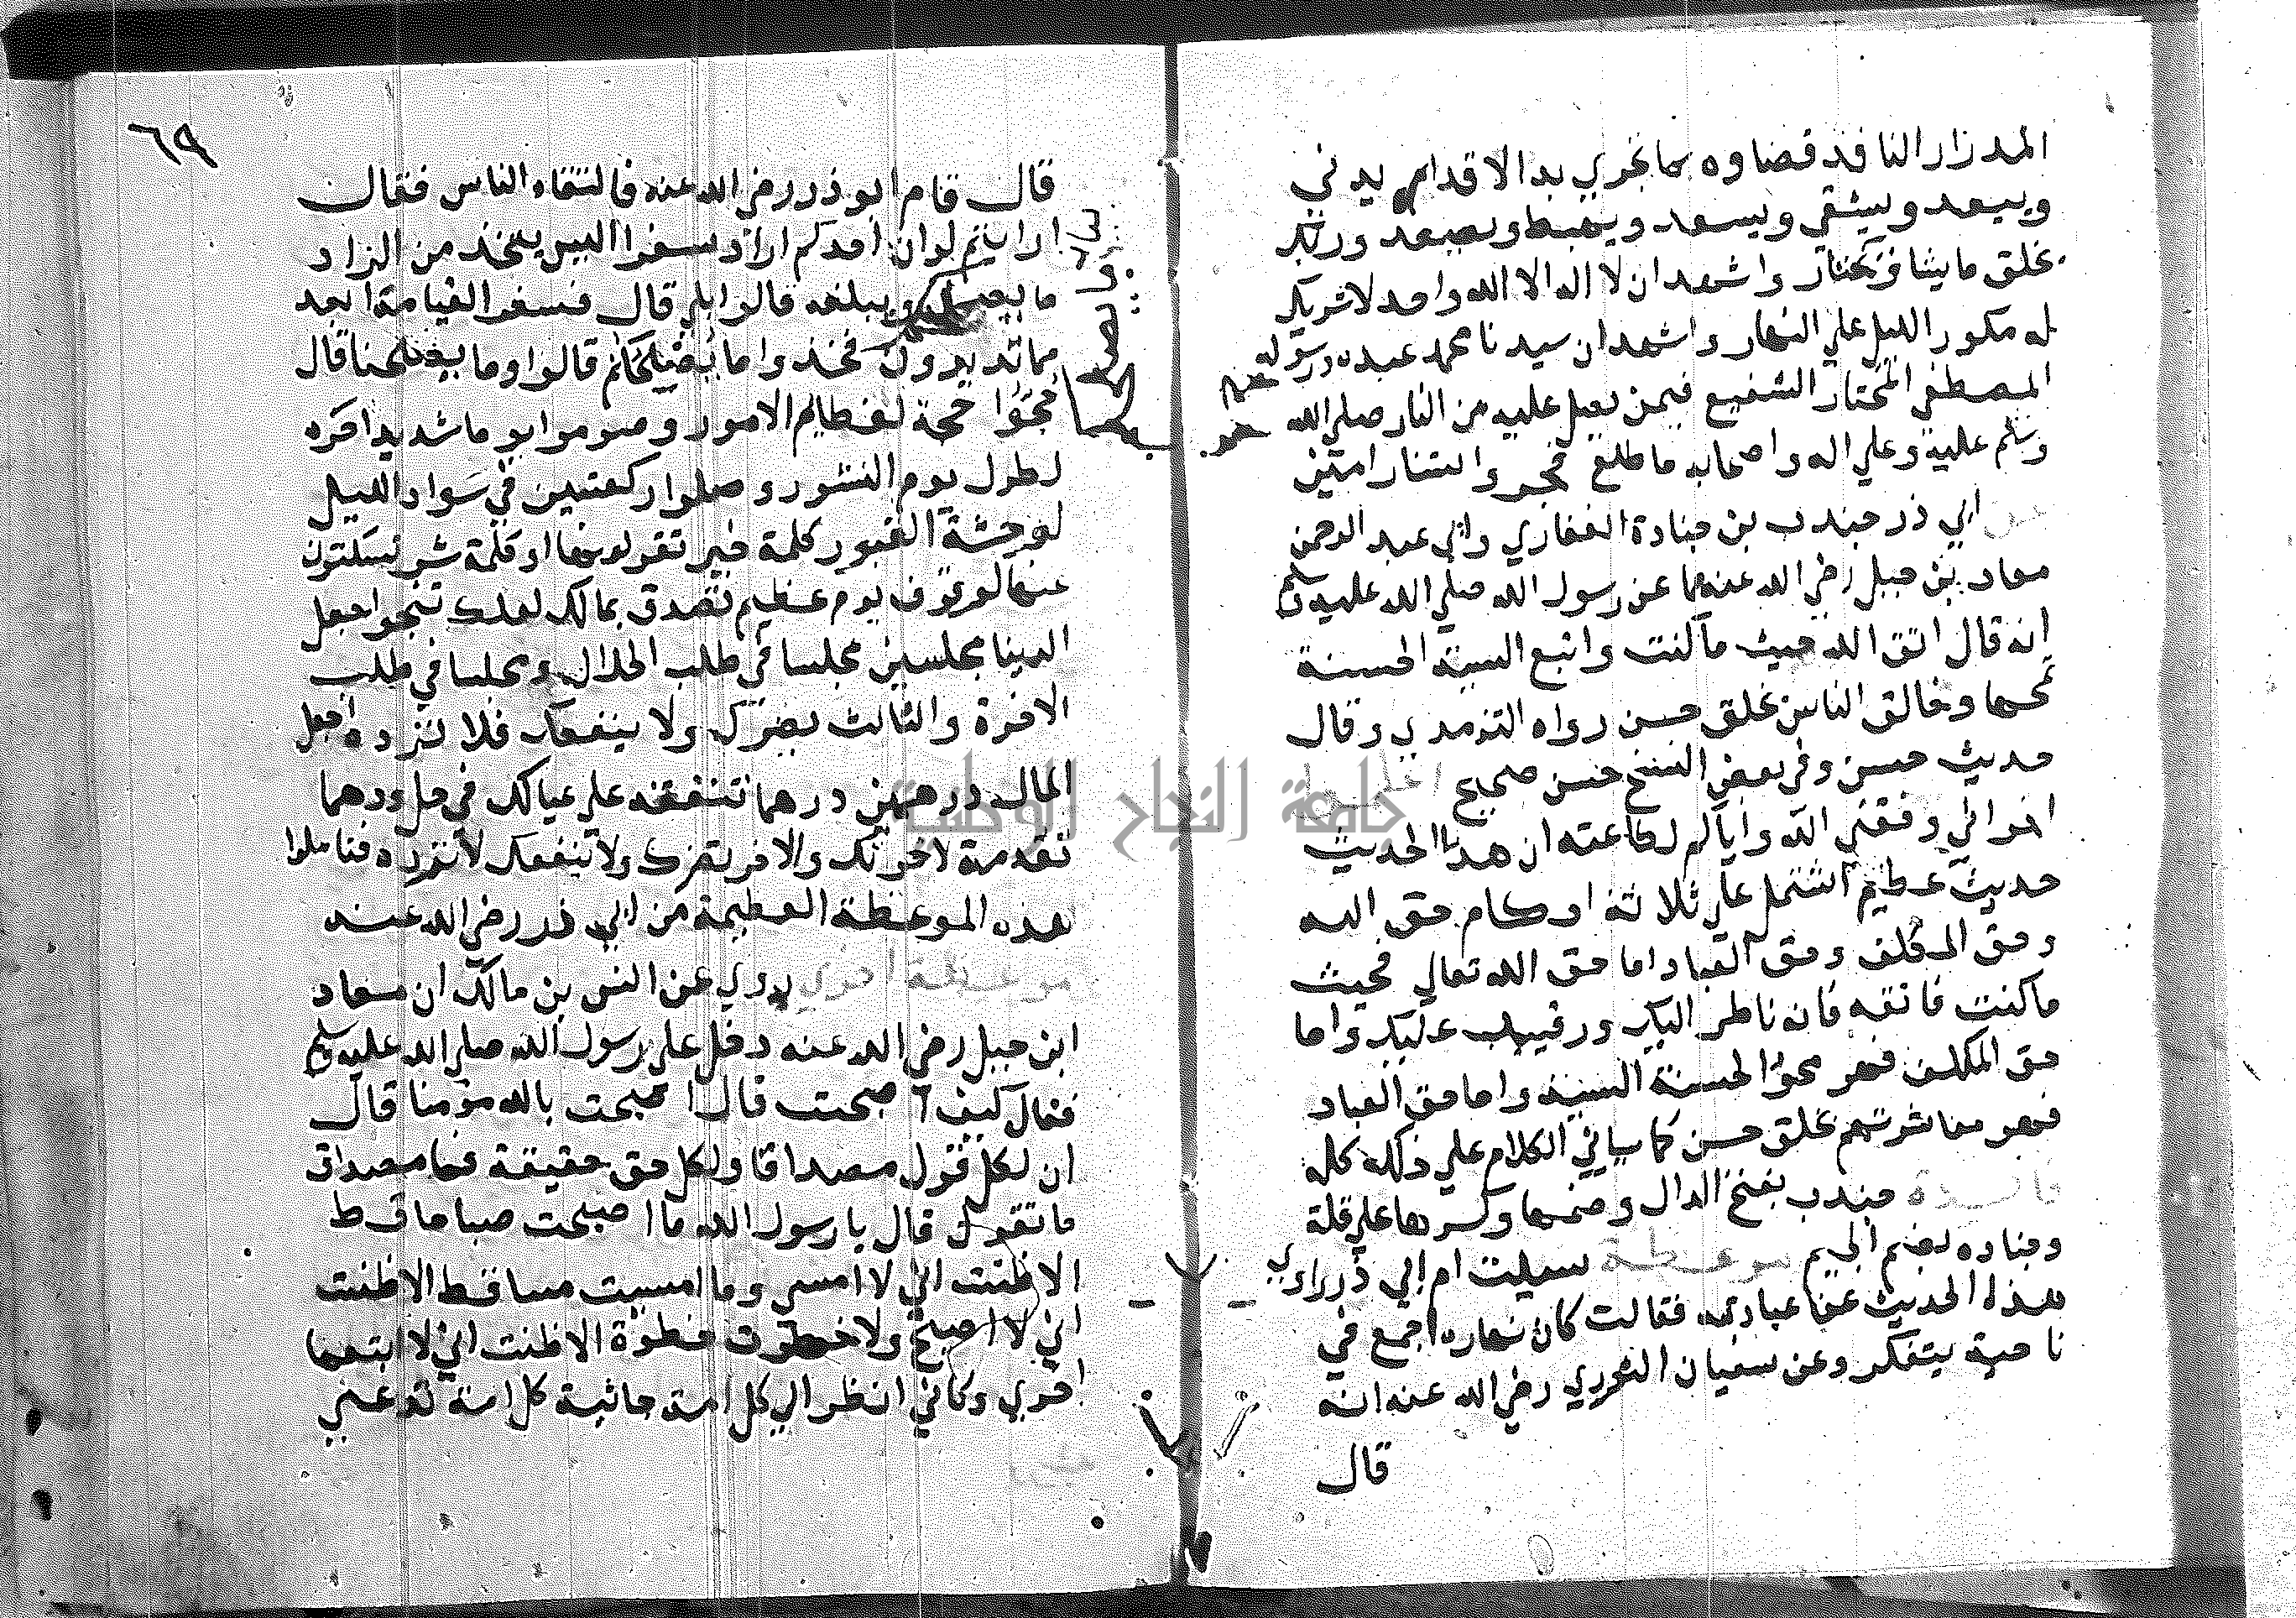 المدرار النافذ قضاوه بما تجري به الاقدام يدني
ويبعد ويشقي ويسعد ويهبط ويصعد وربك
يخلق ما يشا ويختار واشهد ان لا اله الا الله واحد لا شريك
له مكور الليل علي النهار واشهد ان سيدنا محمد عبده ورسوله
المصطفي المختار الشفيع فيمن يصل عليه من النار صلي الله
وسلم عليه وعلي اله واصحابه ما طلع فجر واستنار امين
عن ابي ذر جندب بن جنادة الغفاري وابي عبد الرحمن
معاد بن جبل رضي الله عنهما عن رسول الله صلي الله عليه وسلم
انه قال اتق الله حيث ما كنت واتبع السيية الحسنة
تمحها وخالق الناس بخلق حسن رواه الترمدي وقال
حديث حسن وفي بعض النسخ حسن صحيح
اخواني وفقني الله واياكم لطاعته ان هدا الحديث
حديث عظيم اشتمل علي ثلاثة احكام حق الله
وحق المكلف وحق العباد اما حق الله تعالي فحيث
ما كنت فاتقه فانه ناظر اليك ورقيب عليك واما
حق المكلف فهو محو الحسنة السيية واما حق العباد
فهو معاشرتهم بخلق حسن كما سياتي الكلام علي ذلك كله
فايدة جندب بفتح الدال وضمها وكسرها علي قلة
وجناده بضم الجيم موعظة سيلت ام ابي ذر راوي
هذا الحديث عن عبادته فقالت كان نهاره اجمع في
ناحية يتفكر وعن سفيان الثوري رضي الله عنه انه
قال
٦٩
قال قام ابو ذر رضي الله عنه فالتقاه الناس فقال
ارايتم لو ان احدكم اراد سفرا اليس يتخذ من الزاد
ما يصلحه ويبلغه قالوا بلي قال فسفر القيامة ابعد
مما تريدون فخذوا ما يصلحكم قالوا وما يصلحنا قال
حجوا حجة لعظايم الامور وصوموا يوما شديدا حره
لطول يوم النشور وصلوا ركعتين في سواد الليل
لوحشة القبور كلمة خير تقولونها او كلمة شر تسكتون
عنها لوقوف يوم عظيم تصدق بمالك لعلك تنجو اجعل
الدينا مجلسين مجلسا في طلب الحلال ومجلسا في طلب
الاخرة والثالث يضرك ولا ينفعك فلا تزده اجعل
المال درهمين درهما تنفقه علي عيالك في حل ودرهما
تقدمه لاخرتك والاخر يضرك ولا ينفعك لا تزده فتاملوا
هذه الموعظة العظيمة من ابي ذر رضي الله عنه
موعظة اخري يروي عن انس بن مالك ان معاد
ابن جبل رضي الله عنه دخل علي رسول الله صلي الله عليه وسلم
فقال كيف اصبحت قال اصبحت بالله مؤمنا قال
ان لكل قول مصداقا ولكل حق حقيقة فما مصداق
ما تقول قال يا رسول الله ما اصبحت صباحا قط
الا ظننت اني لا امسي وما امسيت مسا قط الا ظننت
اني لا اصبح ولا خطوت خطوة الا ظننت اني لا اتبعها
اخري وكاني انظر الي كل امة جاثية كل امة تدعي
جامعة النجاح الوطنية